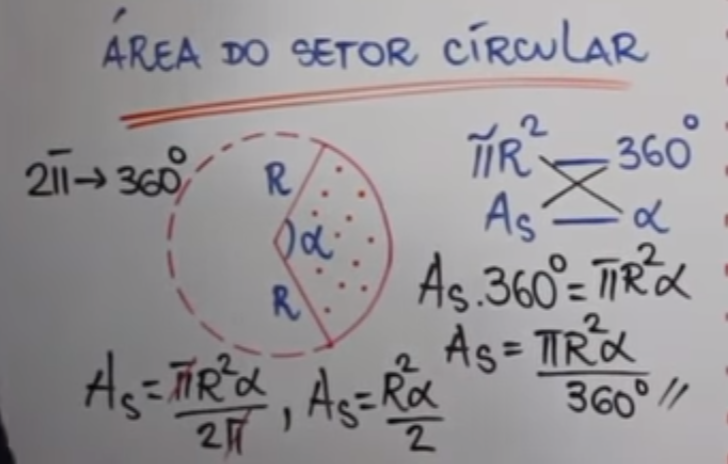 ÁREA DO SETOR CÍRCULAR
2π→360°
R
α
R
πR² — 360°
As — α
As.360°=πR²α
As=πR²α/360°//
As=πR²α/2π, As=R²α/2